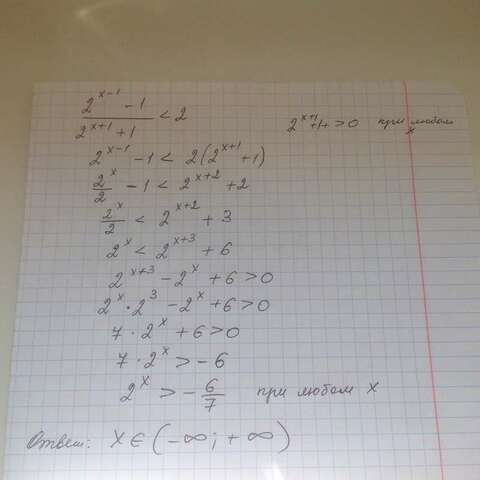 (2^(x-1) - 1)/(2^(x+1) + 1) < 2    2^(x+1) + 1 > 0 при любом x
2^(x-1) - 1 < 2(2^(x+1) + 1)
2^x/2 - 1 < 2^(x+2) + 2
2^x/2 < 2^(x+2) + 3
2^x < 2^(x+3) + 6
2^(x+3) - 2^x + 6 > 0
2^x · 2^3 - 2^x + 6 > 0
7 · 2^x + 6 > 0
7 · 2^x > -6
2^x > -6/7 при любом x
Ответ: x ∈ (-∞; +∞)